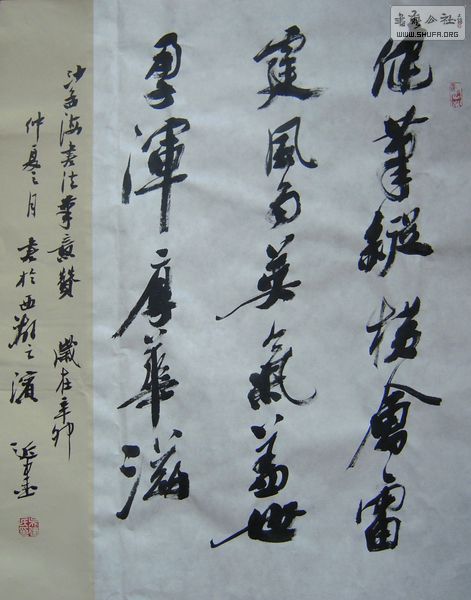 书法公社
WWW.SHUFA.ORG
健筆縱横會雷
霆風雨英氣蓋世
勇渾厚華滋
沙孟海書法筆意贊 歲在辛卯
仲夏之月書於西湖之濱